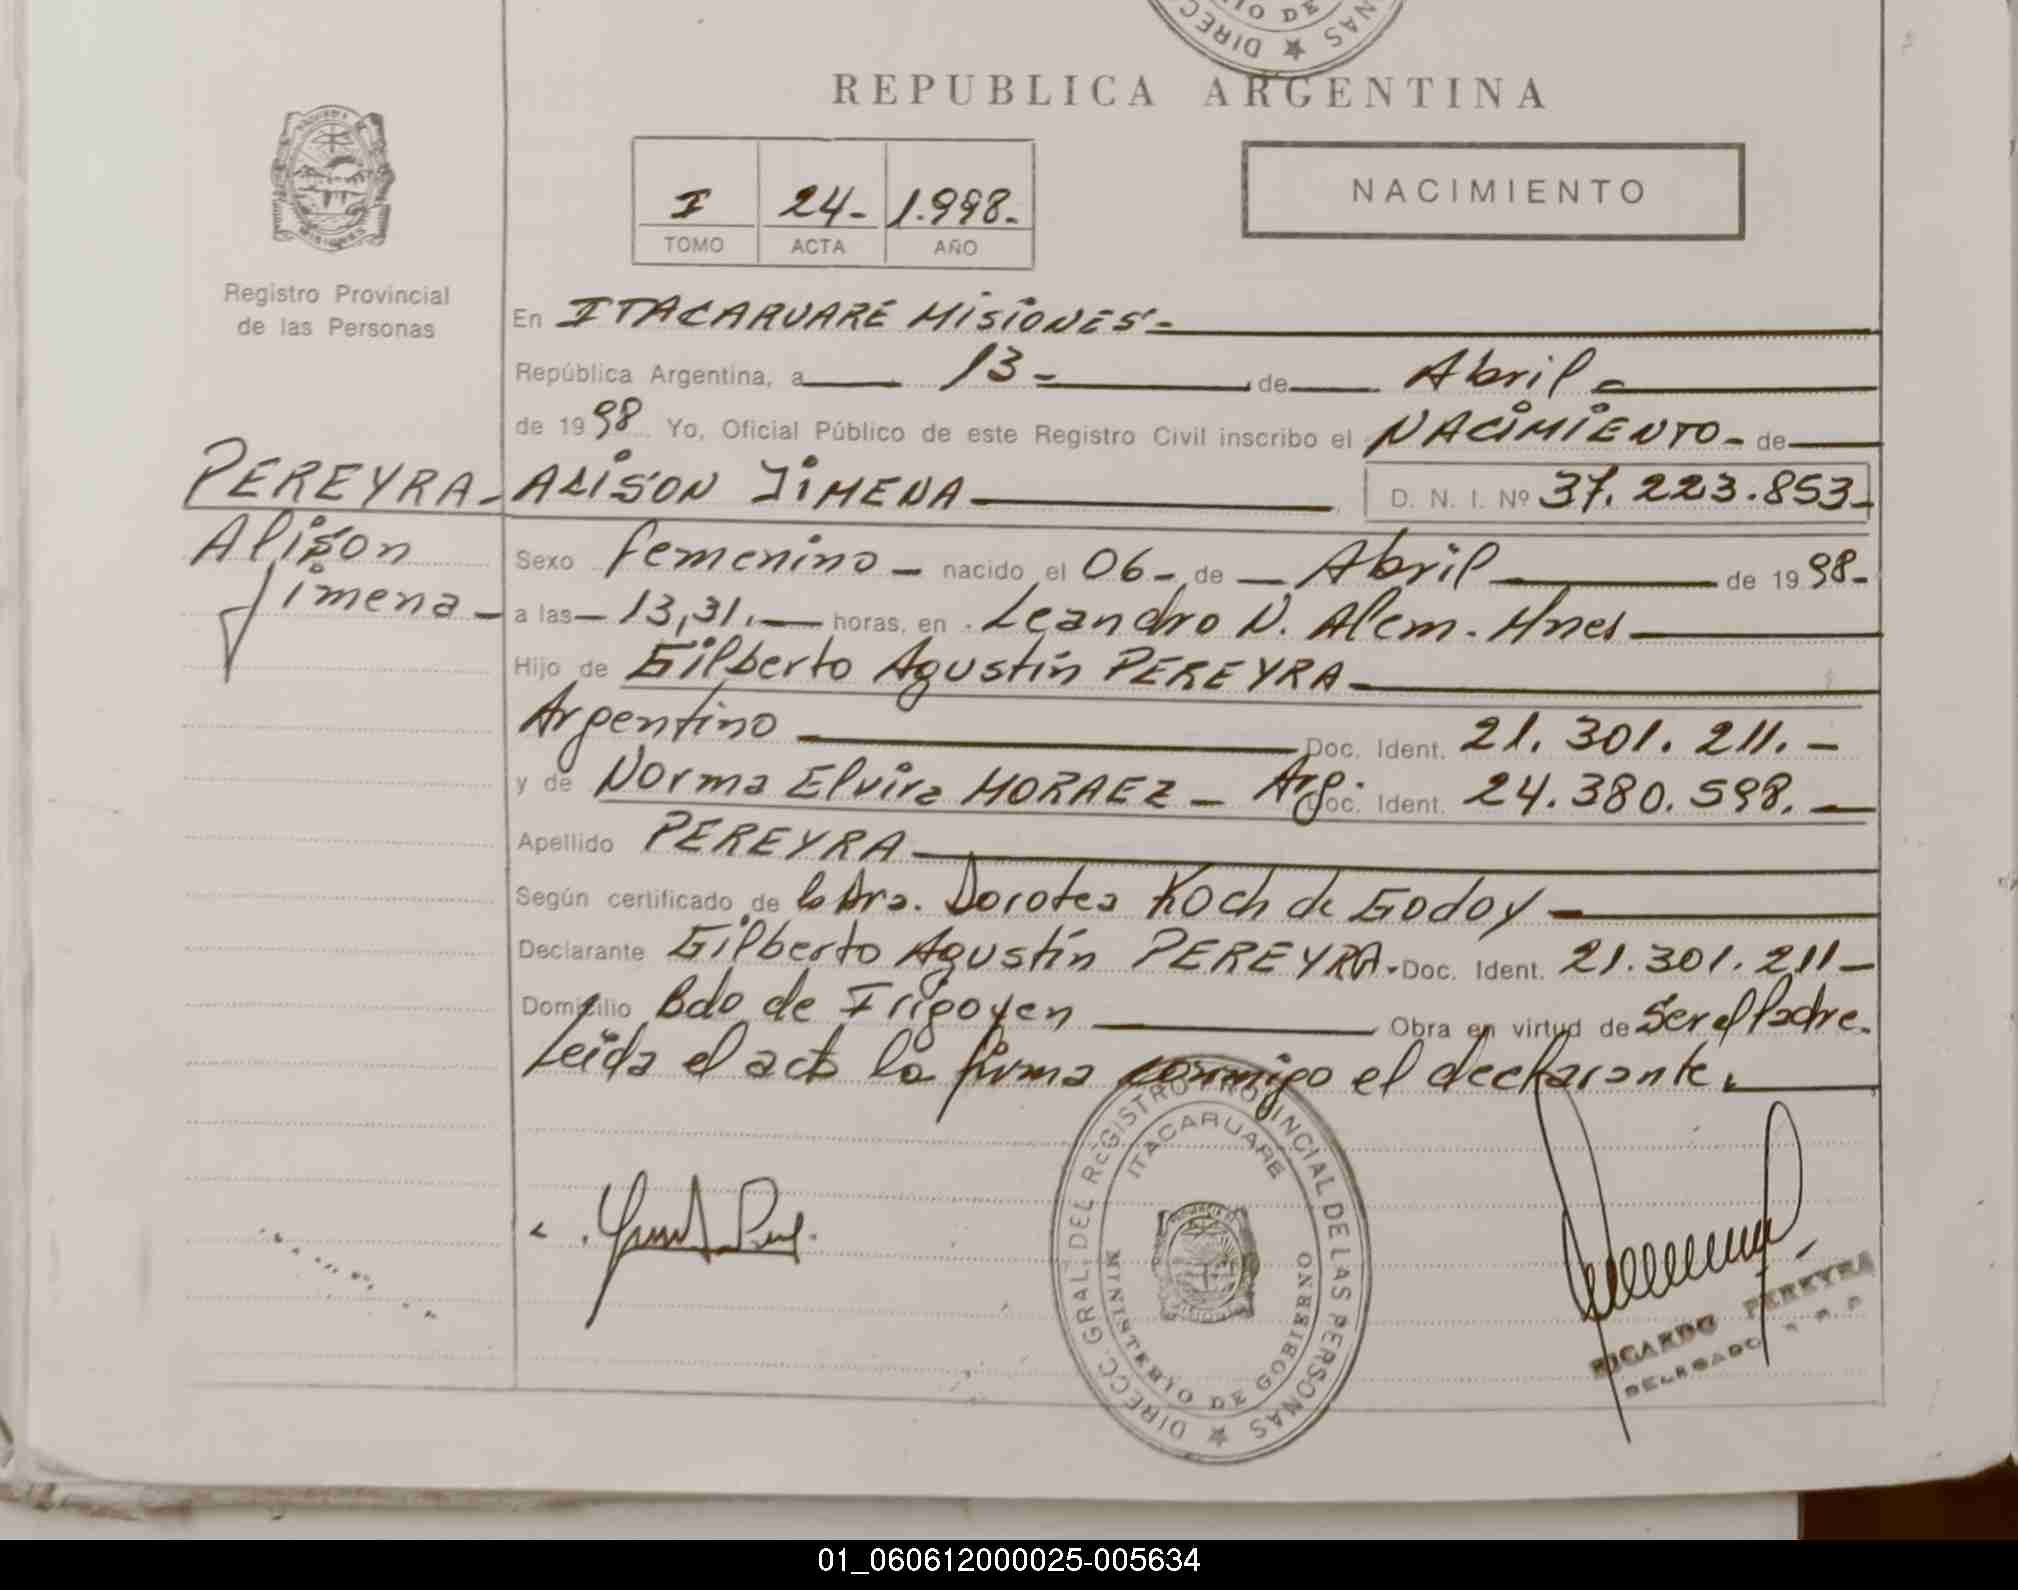 DIRECC
IO DE
NAS
REPUBLICA ARGENTINA
I 24- 1.998-
TOMO ACTA AÑO
NACIMIENTO
Registro Provincial
de las Personas
En ITACARUARÉ MISIONES-
República Argentina, a 13- de Abril
de 1998 Yo, Oficial Público de este Registro Civil inscribo el NACIMIENTO- de
PEREYRA- ALISON JIMENA D. N. I. Nº 37.223.853-
Alison
Jimena-
Sexo femenino- nacido el 06- de - Abril de 1998-
a las - 13,31.- horas, en Leandro N. Alem. Mnes
Hijo de Gilberto Agustín PEREYRA
Argentino Doc. Ident. 21.301.211.-
y de Norma Elvira MORAEZ - Arg: Doc. Ident. 24.380.598.-
Apellido PEREYRA
Según certificado de la Dra. Dorotea Koch de Godoy
Declarante Gilberto Agustín PEREYRA. Doc. Ident. 21.301.211-
Domicilio Bdo de Irigoyen Obra en virtud de Ser el Padre.
Leída el acta la firma conmigo el declarante.
DIRECC. GRAL. DEL REGISTRO PROVINCIAL DE LAS PERSONAS
ITACARUARE
MINISTERIO DE GOBIERNO
RICARDO PEREYRA
DELEGADO
01_060612000025-005634